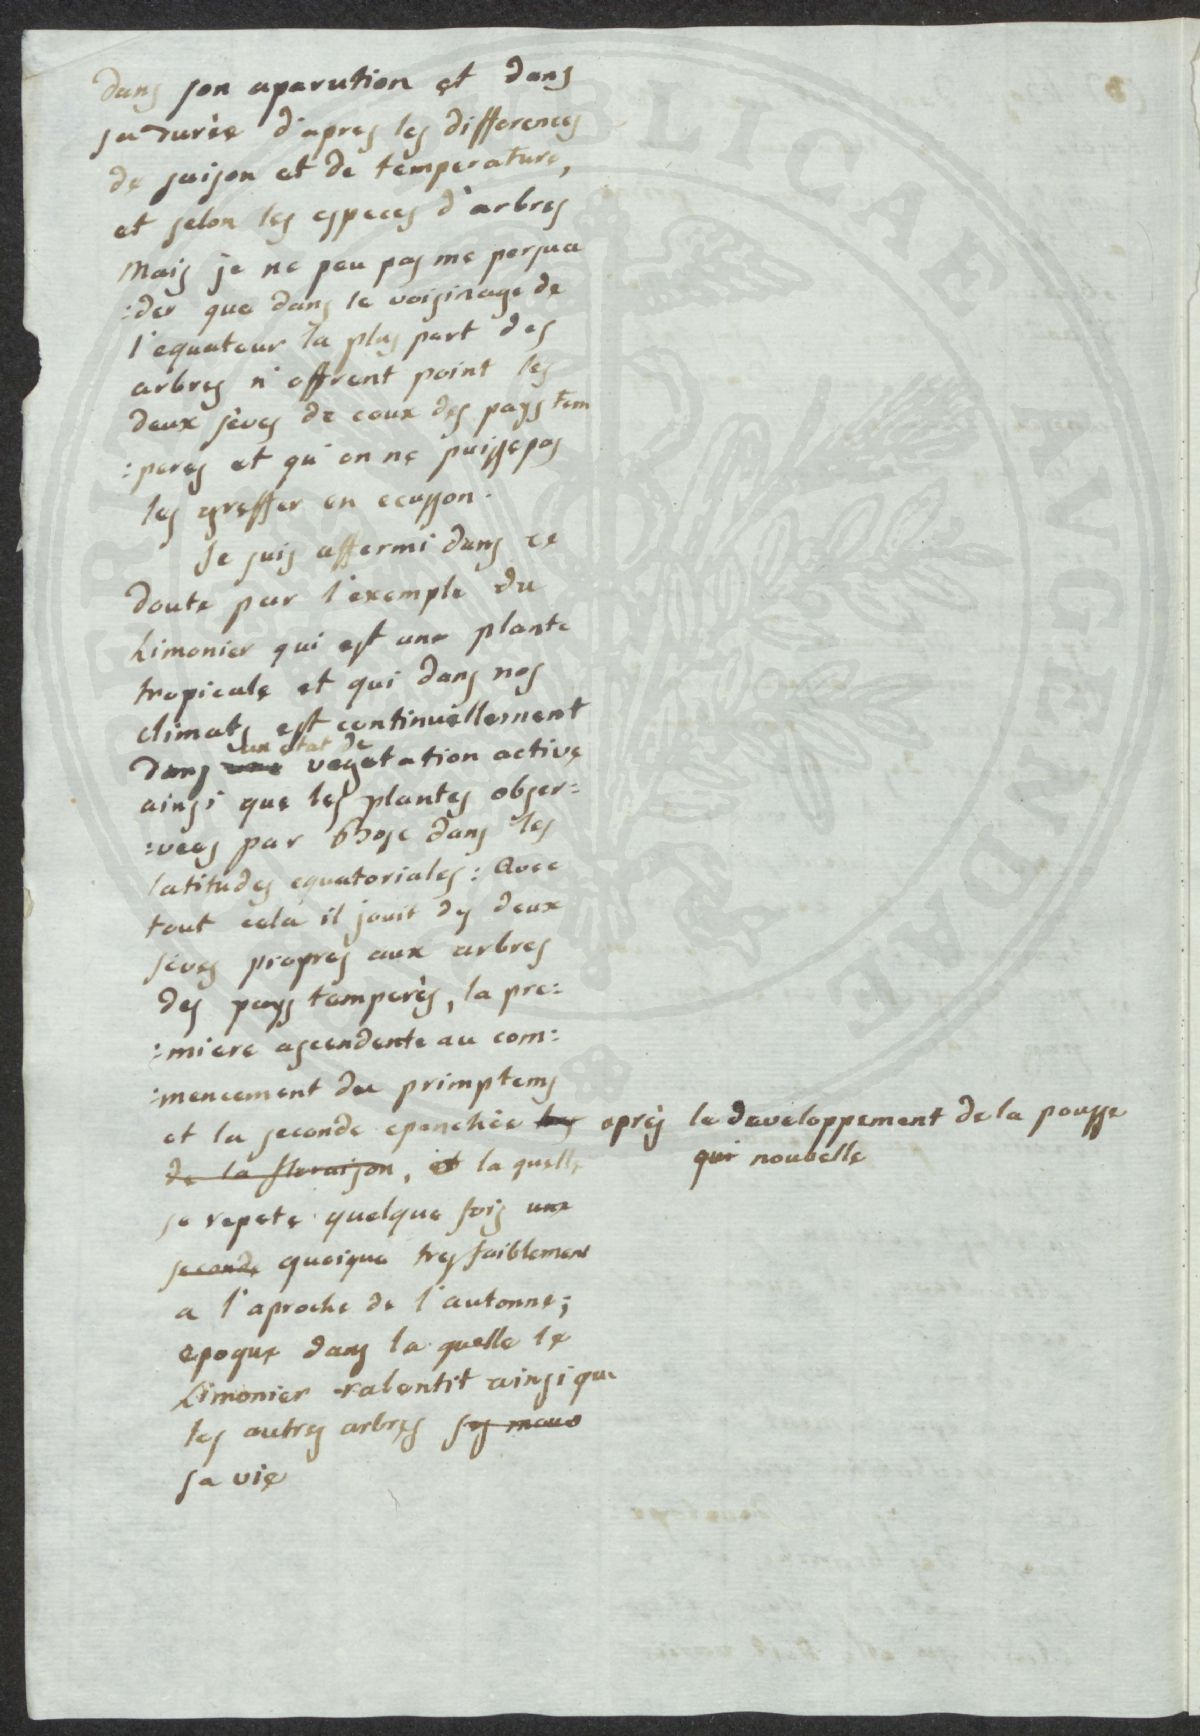 dans son aparution et dans
sa durée d'apres les differences
de saison et de temperature,
et selon les especes d'arbres
Mais je ne peu pas me persua
:der que dans le voisinage de
l'equateur la plus part des
arbres n'offrent point les
deux sèves de ceux des pays tem
:peres et qu'on ne puisse pas
les greffer en ecusson.
Je suis affermi dans ce
doute par l'exemple du
Limonier qui est une plante
tropicale et qui dans nos
climats est continuellement
un etat de
dans une vegetation active
ainsi que les plantes obser:
:vées par Bosc dans les
latitudes equatoriales: Avec
tout cela il jouit des deux
sèves propres aux arbres
des pays temperès, la pre:
:miere ascendente au com:
:mencement du primptems
et la seconde epanchée les après le developpement de la pousse
de la floraison, et la quelle qui nouvelle
se repete quelque fois une
seconde quoique tres faiblement
a l'aproche de l'automne;
epoque dans la quelle le
Limonier ralentit ainsi que
les autres arbres ses mouv
sa vie